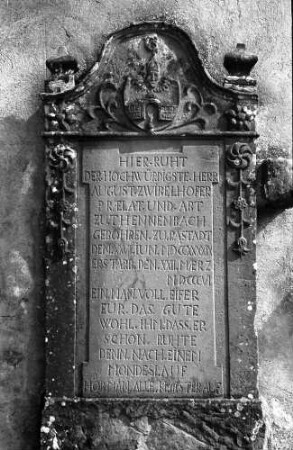 HIER·RUHT
DER HOCHWÜRDIGSTE HERR
AUGUST·ZWIBELHOFER
PRELAT·UND·ABT
ZU THENNENBACH
GEBOHREN·ZU·RASTADT
DEN
ER STARB·DEN·XXII·MERZ
EIN MAN VOLL EIFER
FUR·DAS·GUTE
WOHL·IHM·DASS·ER
SCHON·RUHTE
DENN·NACH·EINEM
MONDESLAUF